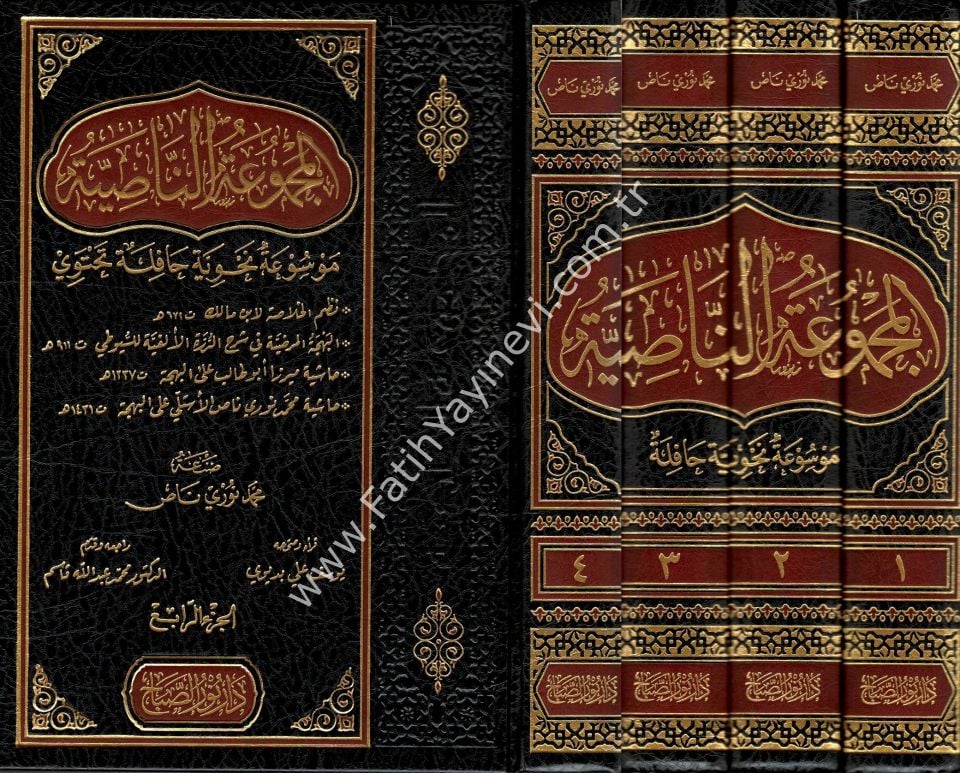 المجموعة الناصية
موسوعة نحوية حافلة تحتوي
* نظم الخلاصة لابن مالك ت ٦٧١هـ
* البهجة المرضية في شرح الدرة الألفية للسيوطي ت ٩١١هـ
* حاشية ميرزا أبو طالب على البهجة ت ١٢٣٧هـ
* حاشية محمد نوري ناص الأسلي على البهجة ت ١٤٣١هـ
صنعة
محمد نوري ناص
قرأه وصححه
علي بديوي
راجعه وقدم
الدكتور محمد عبد الله قاسم
الجزء الرابع
دار نور الصباح
محمد نوري ناص
محمد نوري ناص
محمد نوري ناص
محمد نوري ناص
المجموعة الناصية
موسوعة نحوية حافلة
١
٢
٣
٤
دار نور الصباح
دار نور الصباح
دار نور الصباح
دار نور الصباح
www.FatihYayinevi.com.tr